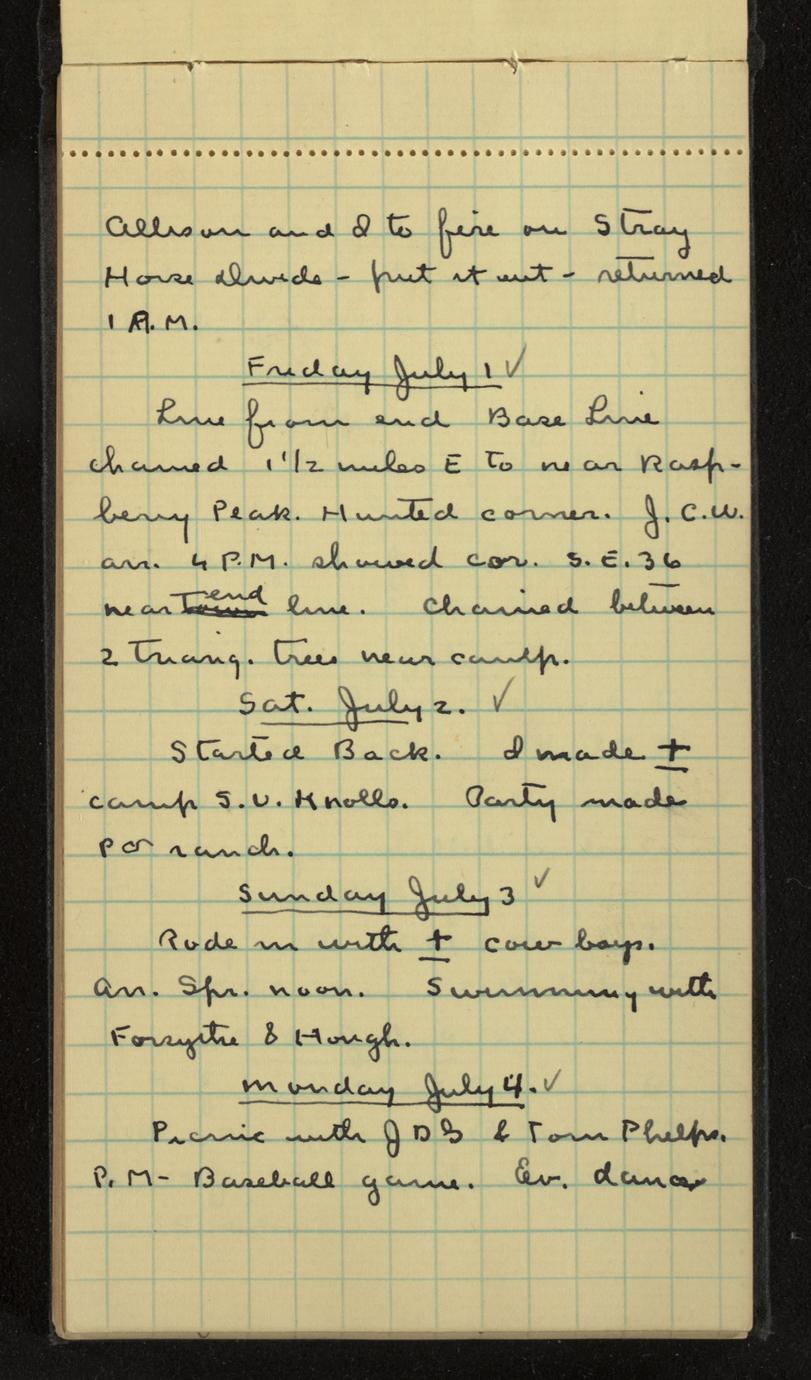 Allison and I to fire on Stray
Horse Divide - put it out - returned
1 A.M.
Friday July 1 ✓
Line from end Base Line
chained 1 1/2 miles E to near Rasp-
berry Peak. Hunted corner. J.C.W.
arr. 4 P.M. showed cor. S.E. 36
near end line. Chained between
2 triang. trees near camp.
Sat. July 2. ✓
Started Back. I made +
camp S.U. Knolls. Party made
ranch.
Sunday July 3 ✓
Rode in with + cow boys.
Arr. Spr. noon. Swimming with
Forsythe & Hough.
Monday July 4. ✓
Picnic with J D G & Tom Phelps.
P.M- Baseball game. Ev. dance